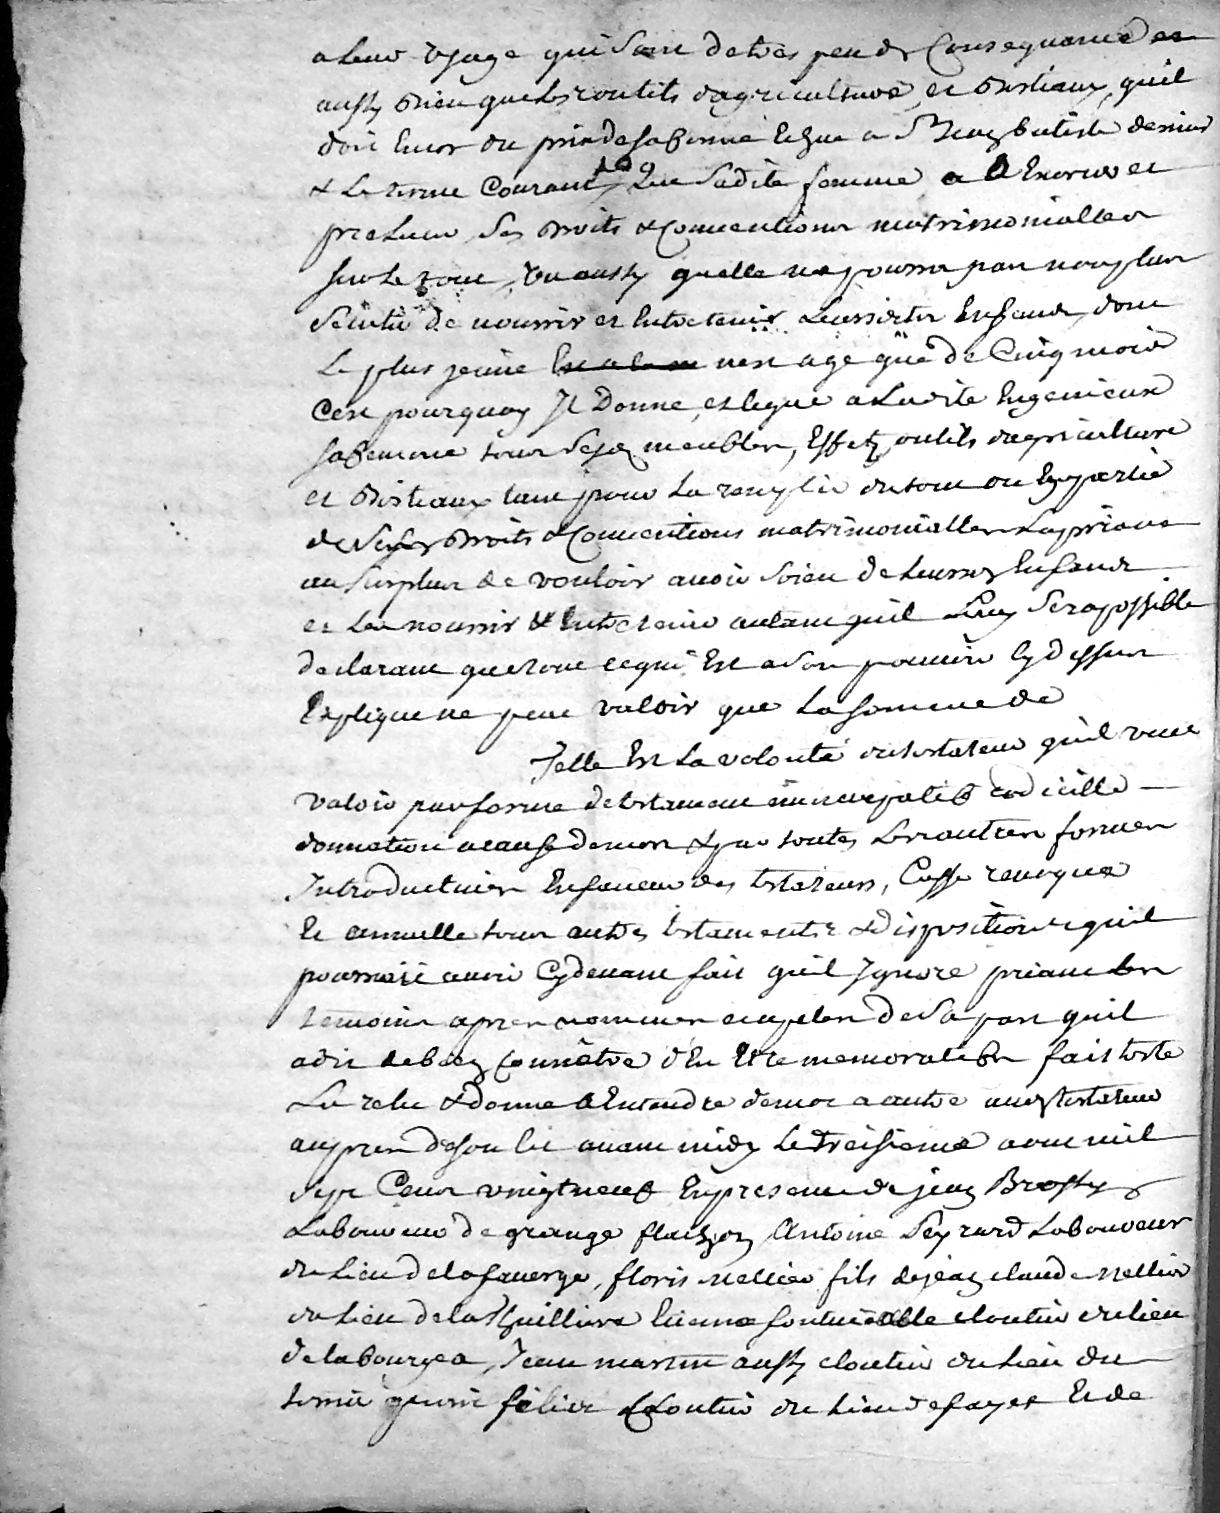 a leur usage qui sont de tres peu de Consequance et
aussy bien que les outils dagriculture, et Bestiaux, quil
doit encor du prix de sa ferme Echue a St Jean batiste dernier
& Le terme Courant, que sadite femme a A Exercer et
prelever ses Droits & Conventions matrimonialles
sur Le tout, vu aussy quelle ne pourra pas non plus
de nourrir et Entretenir Leursdits Enfans, dont
Le plus jeune nest agé que de Cinq mois
Cest pourquoy Il Donne, et legue a Ladite Engenieux
sa femme tous sesd meubles, Effets, outils dagriculture
et Bestiaux tant pour La remplir du tout ou En partie
de sesd Droits & Conventions matrimonialles La priant
au surplus de vouloir avoir soien de Leursd Enfans
et Les nourrir & Entretenir autant quil Luy sera possible
declarant que tout ce qui Est a son pouvoir Cy dessus
Expliqué ne peut valoir que La somme de
Telle Est La volonté du testateur quil veut
valoir par forme de testament nuncupatif codicille
donnation a cause de mort & par toutes Les autres formes
Introduittes En faveur des testateurs, Casse revoque
Et annulle tous autres testaments & dispositions quil
pourroit avoir Cy devant fait quil Ignore priant Les
temoins apres nommes appeles de sa part quil
a dit de bien Connètre d'En Etre memoratifs fait testé
Lu relu & donné A Entendre de mot a autre audt testateur
aupres de son lit avant midy Le treisieme aout mil
sept Cent vingtneuf En presence de jean Brossy
Laboureur de grange flachon Antoine Peyrard Laboureur
du Lieu de la faverge, floris Mellier fils de jean claude Mellier
du Lieu de la Guilliere Etienne fontvieille cloutier du lieu
de la bourgea, Jean martin aussy cloutier du Lieu du
felix Cloutier du Lieu de fayet Et de